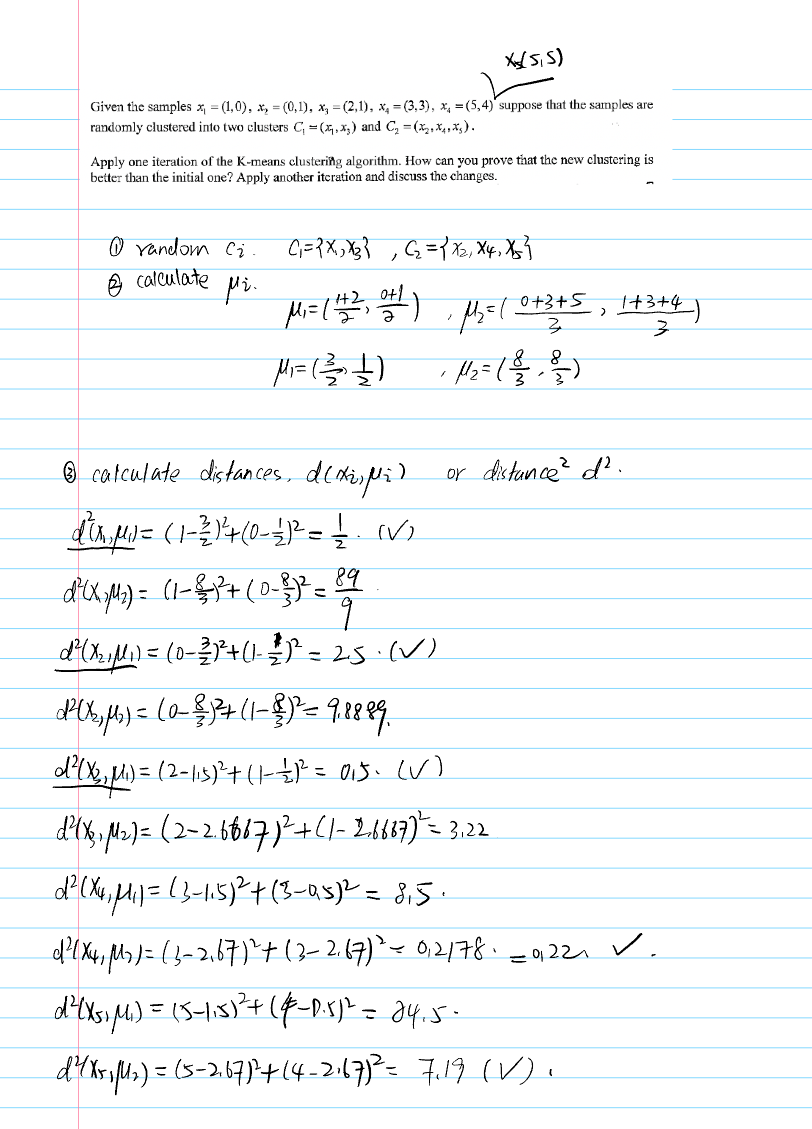 X₅(5,5)
Given the samples x₁ = (1,0), x₂ = (0,1), x₃ = (2,1), x₄ = (3,3), x₄ = (5,4) suppose that the samples are
randomly clustered into two clusters C₁ = (x₁, x₃) and C₂ = (x₂, x₄, x₅).
Apply one iteration of the K-means clustering algorithm. How can you prove that the new clustering is
better than the initial one? Apply another iteration and discuss the changes.
① random Ci. C₁={X₁,X₃}, C₂={X₂,X₄,X₅}
② calculate μi.
μ₁=(1+2/2, 0+1/2), μ₂=(0+3+5/3, 1+3+4/3)
μ₁=(3/2, 1/2), μ₂=(8/3, 8/3)
③ calculate distances, d(xi,μi) or distance² d².
d²(x₁,μ₁)= (1-3/2)²+(0-1/2)²= 1/2. (√)
d²(x₁,μ₂)= (1-8/3)²+(0-8/3)²= 89/9
d²(x₂,μ₁)= (0-3/2)²+(1-1/2)² = 2.5. (√)
d²(x₂,μ₂)= (0-8/3)²+(1-8/3)²= 9.8889.
d²(x₃,μ₁)= (2-1.5)²+(1-1/2)² = 0.5. (√)
d²(x₃,μ₂)= (2-2.6667)²+(1-2.6667)²= 3.22
d²(x₄,μ₁)= (3-1.5)²+(3-0.5)² = 8.5.
d²(x₄,μ₂)= (3-2.67)²+(3-2.67)²= 0.2178. =0.22 ✓.
d²(x₅,μ₁)= (5-1.5)²+(4-0.5)² = 24.5.
d²(x₅,μ₂)= (5-2.67)²+(4-2.67)²= 7.19 (√).